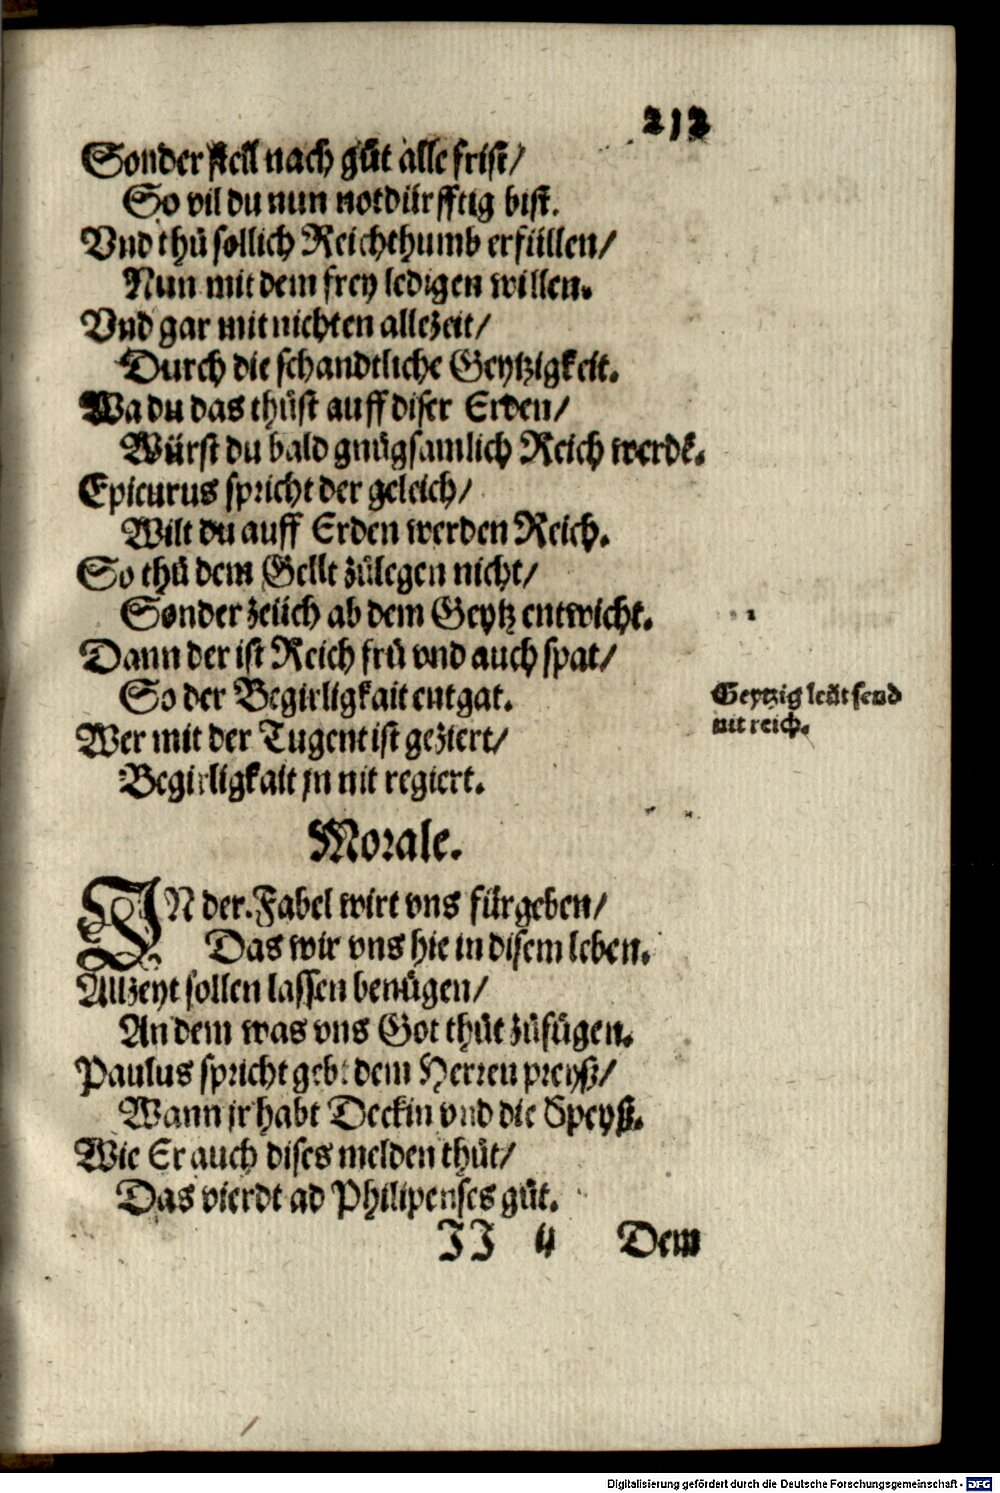 212
Sonder stell nach gůt alle frist/
So vil du nun notdürfftig bist.
Vnd thů sollich Reichthumb erfüllen/
Nun mit dem frey ledigen willen.
Vnd gar mit nichten allezeit/
Durch die schandtliche Geytzigkeit.
Wa du das thůst auff diser Erden/
Würst du bald gnůgsamlich Reich werdē.
Epicurus spricht der geleich/
Wilt du auff Erden werden Reich.
So thů dem Gellt zůlegen nicht/
Sonder zeüch ab dem Geytz entwicht.
Dann der ist Reich frů vnd auch spat/
So der Begirligkait entgat.
Geytzig leüt send
nit reich.
Wer mit der Tugent ist geziert/
Begirligkait jn nit regiert.
Morale.
IN der Fabel wirt vns fürgeben/
Das wir vns hie in disem leben.
Allzeyt sollen lassen benůgen/
An dem was vns Got thůt zůfůgen.
Paulus spricht gebt dem Herren preyß/
Wann jr habt Deckin vnd die Speyß.
Wie Er auch dises melden thůt/
Das vierdt ad Philipenses gůt.
II ij Dem
Digitalisierung gefördert durch die Deutsche Forschungsgemeinschaft - DFG